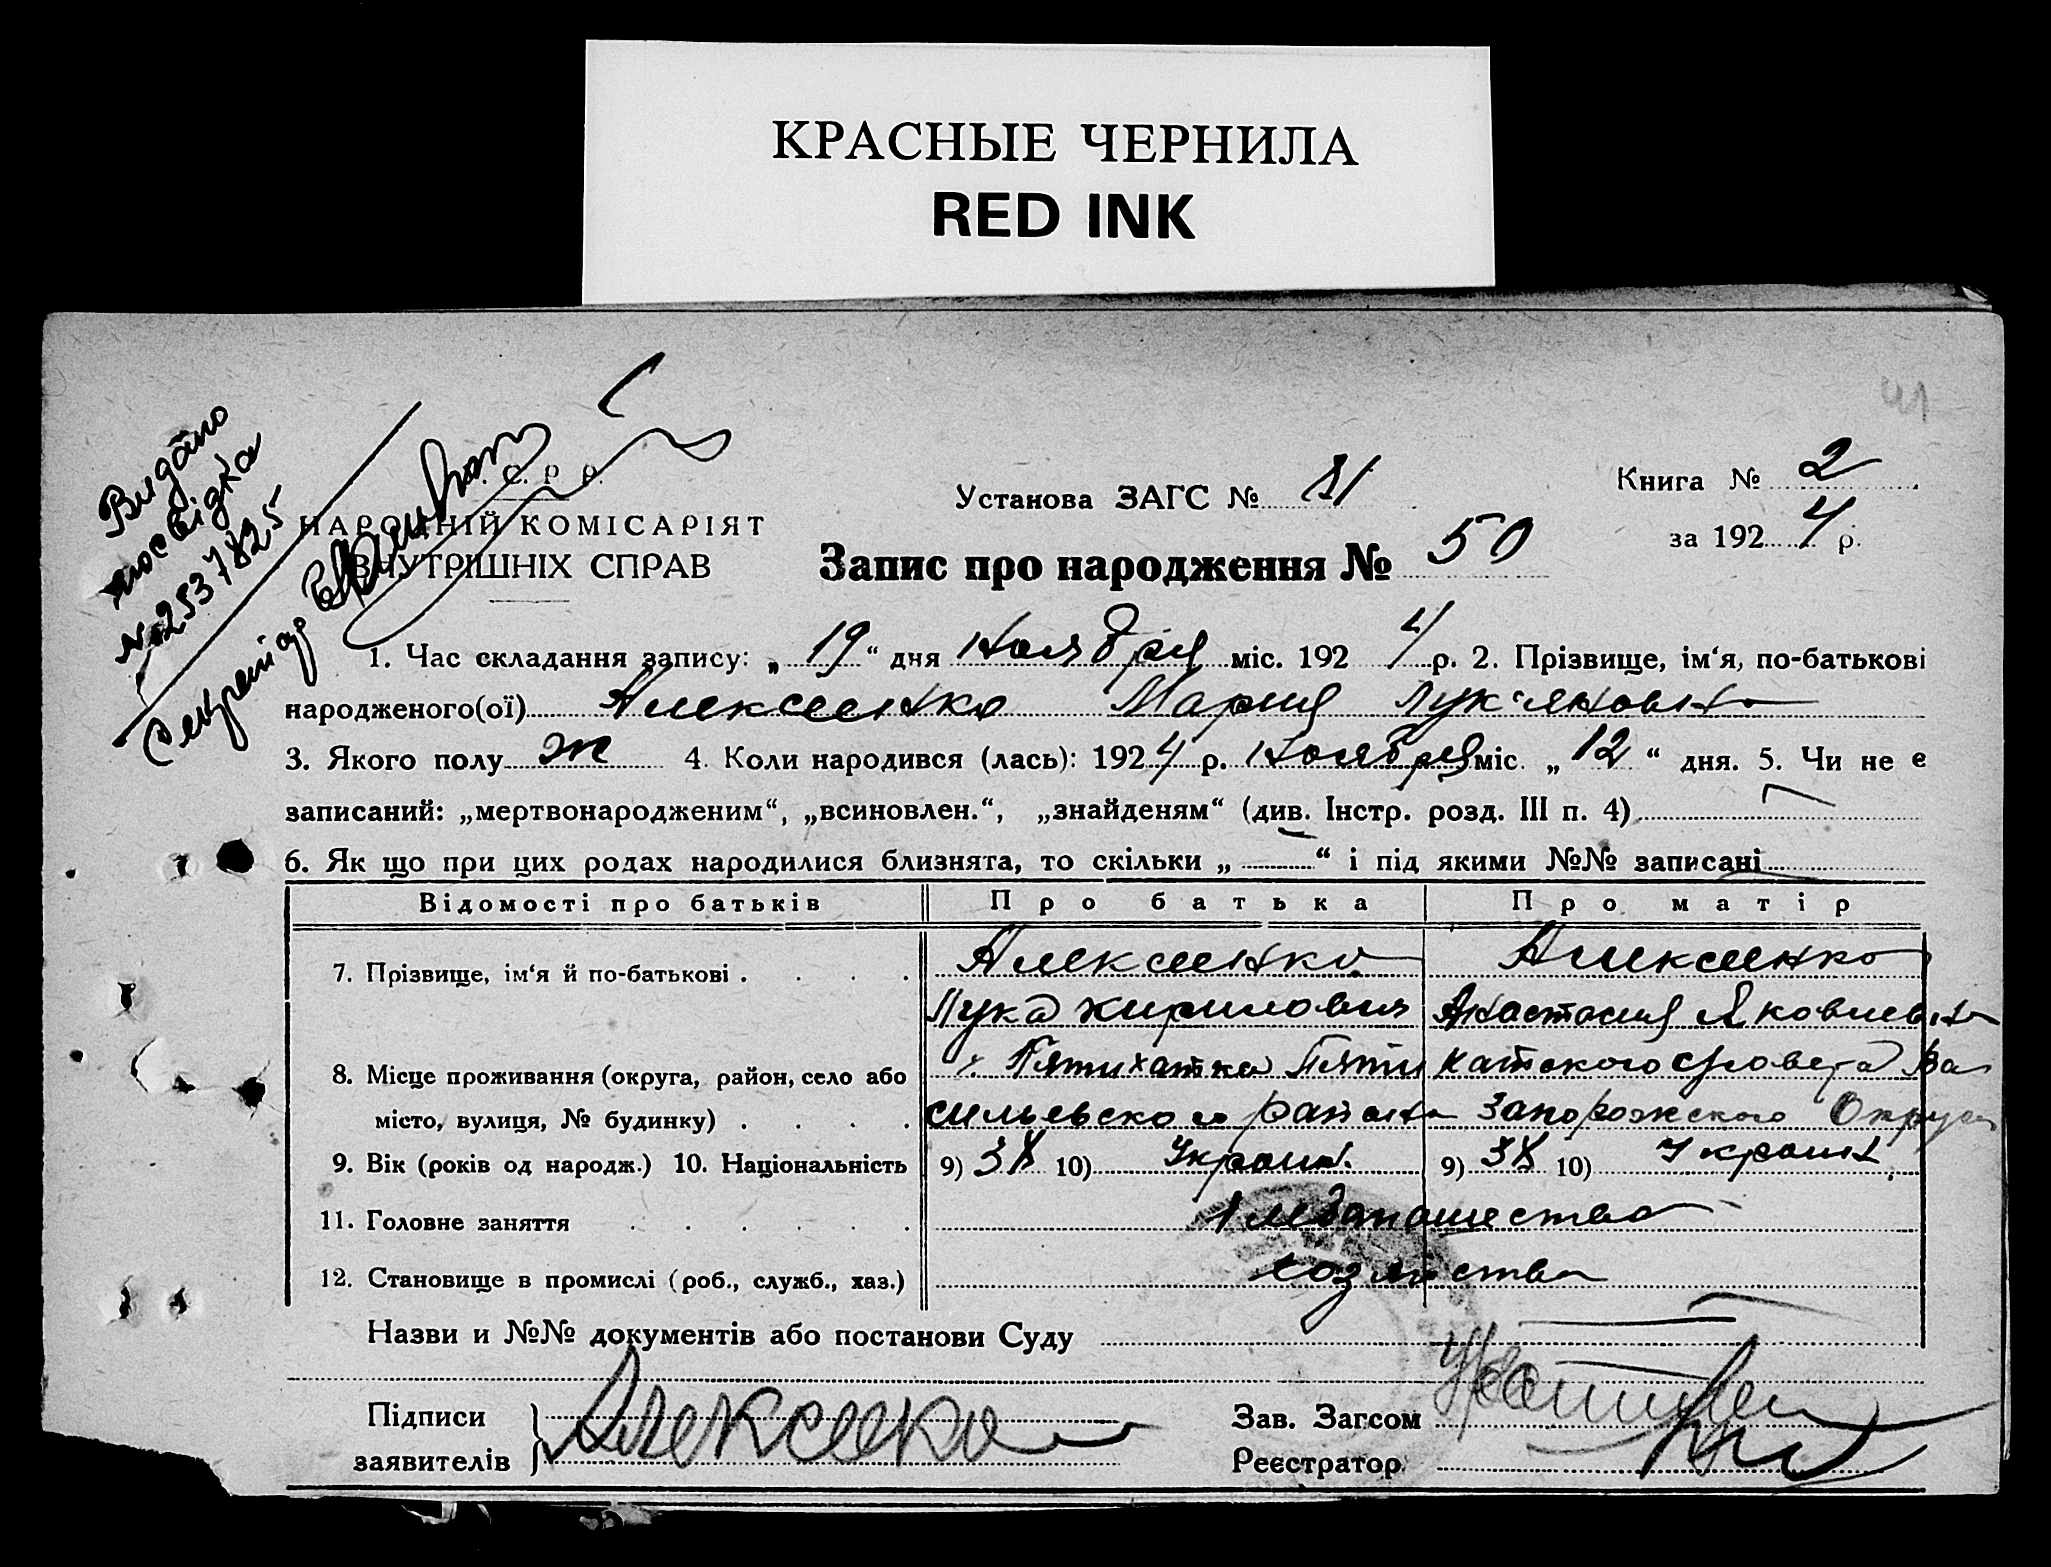 КРАСНЫЕ ЧЕРНИЛА
RED INK
Видано
посвідка
№2537825
Секретар
С. Р. Р.
НАРОДНІЙ КОМІСАРІЯТ
ВНУТРІШНІХ СПРАВ
Установа ЗАГС №
Книга № 2
за 1924 р.
Запис про народження № 50
1. Час складання запису: „19“ дня Ноября міс. 1924 р. 2. Прізвище, ім‘я, по-батькові
народженого(ої) Алексеенко Мария Лук‘яновна
3. Якого полу ж 4. Коли народився (лась): 1924 р. Ноября міс. „12“ дня. 5. Чи не є
записаний: „мертвонародженим“, „всиновлен.“, „знайденям“ (див. Інстр. розд. III п. 4)
6. Як що при цих родах народилися близнята, то скільки „ — “ і під якими №№ записані
Відомості про батьків Про батька Про матір
7. Прізвище, ім‘я й по-батькові . . . . Алексеенко Алексеенко
Лука Кирилович Анастасия Яковлевна
8. Місце проживання (округа, район, село або Пятихатка Пяти катского совета Ва
місто, вулиця, № будинку) . . . . сильевского района Запорожского Округа
9. Вік (років од народж.) 10. Національність 9) 38 10) Украин. 9) 38 10) Украин.
11. Головне заняття . . . . . . хлебопашество
12. Становище в промислі (роб., служб., хаз.) хозяйство
Назви и №№ документів або постанови Суду
Підписи
заявителів
Алексеенко
Зав. Загсом
Реєстратор